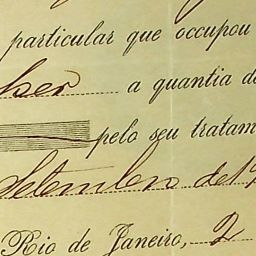 particular que occupou
a quantia de
pelo seu tratam
Setembro de 19
Rio de Janeiro, 2